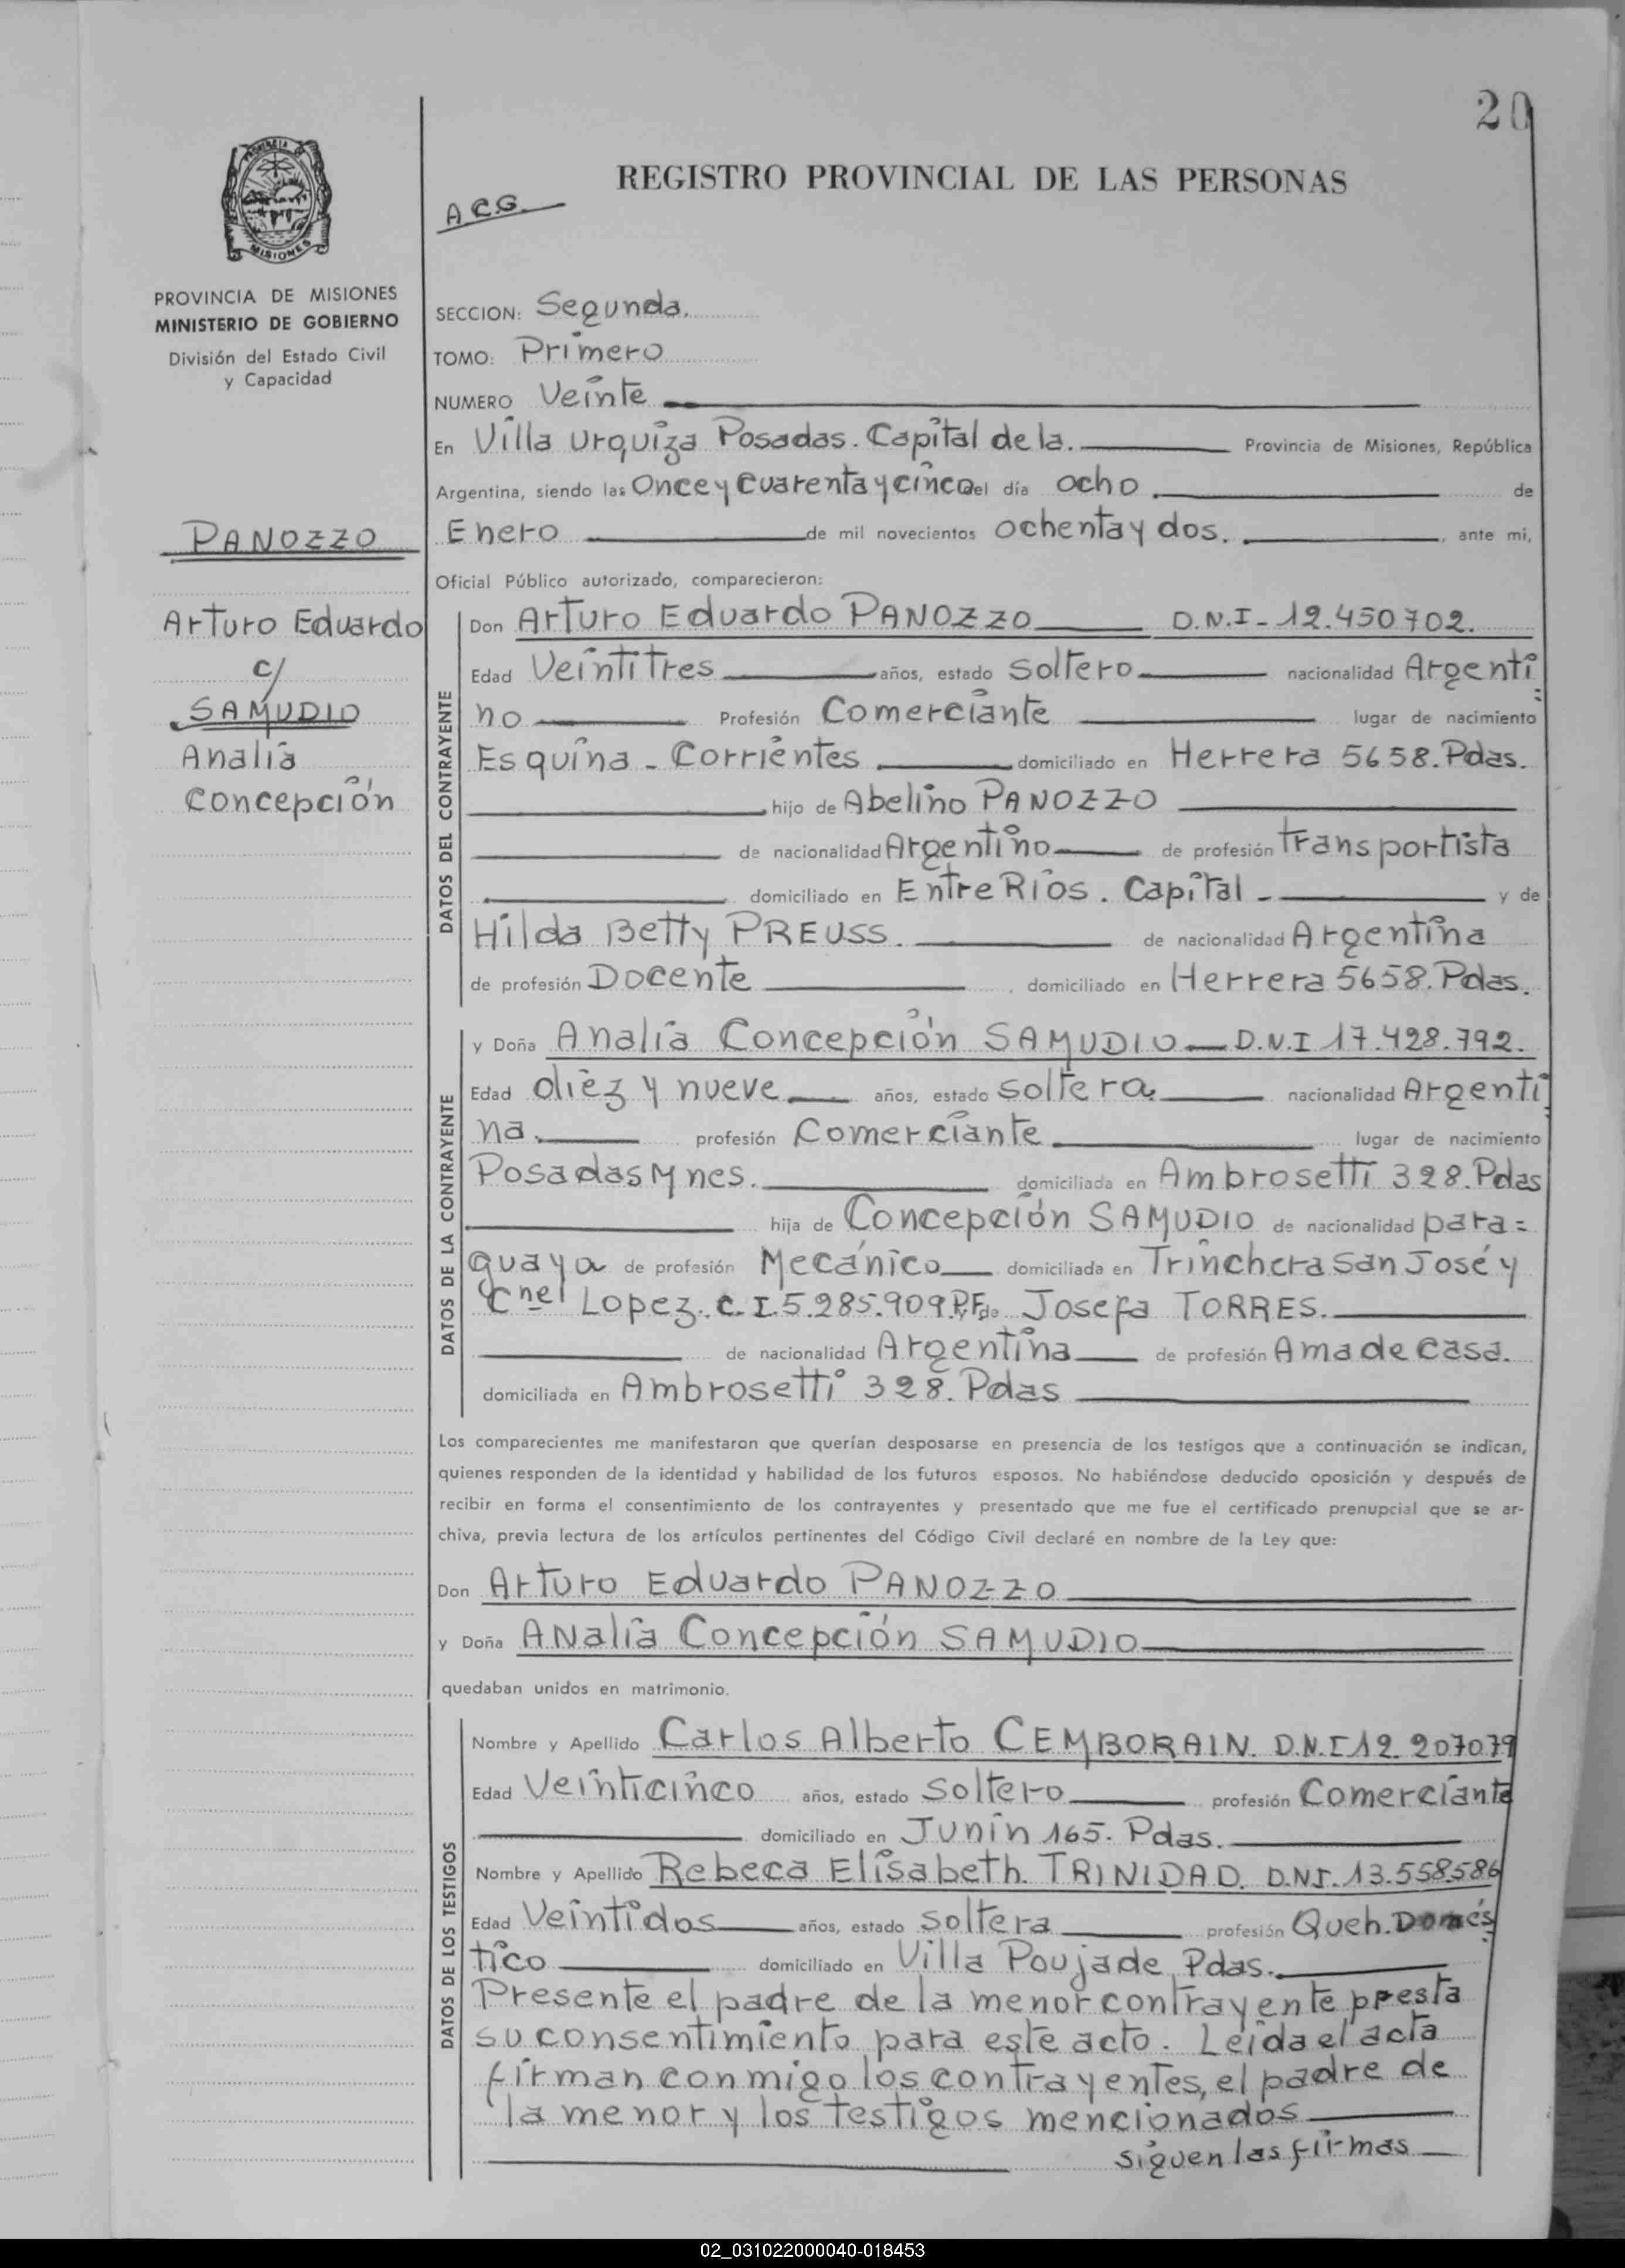 20
REGISTRO PROVINCIAL DE LAS PERSONAS
A C G
PROVINCIA DE MISIONES
MINISTERIO DE GOBIERNO
División del Estado Civil
y Capacidad
PANOZZO
Arturo Eduardo
c/
SAMUDIO
Analia
Concepción
SECCION: Segunda.
TOMO: Primero
NUMERO Veinte
En Villa Urquiza Posadas. Capital de la. Provincia de Misiones, República
Argentina, siendo las Once y Cuarenta y cinco del día ocho. de
Enero de mil novecientos ochenta y dos. , ante mi,
Oficial Público autorizado, comparecieron:
DATOS DEL CONTRAYENTE
Don Arturo Eduardo PANOZZO D.N.I - 12.450702.
Edad Veintitres años, estado soltero nacionalidad Argenti
no Profesión Comerciante lugar de nacimiento
Esquina - Corrientes domiciliado en Herrera 5658. Pdas.
, hijo de Abelino PANOZZO
de nacionalidad Argentino de profesión transportista
domiciliado en Entre Rios. Capital - y de
Hilda Betty PREUSS. de nacionalidad Argentina
de profesión Docente , domiciliado en Herrera 5658. Pdas.
DATOS DE LA CONTRAYENTE
y Doña Analia Concepción SAMUDIO D.N.I 17.428.792.
Edad diez y nueve años, estado soltera nacionalidad Argenti
na. profesión Comerciante lugar de nacimiento
Posadas Mnes. domiciliada en Ambrosetti 328. Pdas
hija de Concepción SAMUDIO de nacionalidad para=
guaya de profesión Mecánico domiciliada en Trinchera San José y
Cnel Lopez. C.I.5.285.909 P.F. de Josefa TORRES.
de nacionalidad Argentina de profesión Ama de casa.
domiciliada en Ambrosetti 328. Pdas
Los comparecientes me manifestaron que querían desposarse en presencia de los testigos que a continuación se indican,
quienes responden de la identidad y habilidad de los futuros esposos. No habiéndose deducido oposición y después de
recibir en forma el consentimiento de los contrayentes y presentado que me fue el certificado prenupcial que se ar-
chiva, previa lectura de los artículos pertinentes del Código Civil declaré en nombre de la Ley que:
Don Arturo Eduardo PANOZZO
y Doña ANalia Concepción SAMUDIO
quedaban unidos en matrimonio.
DATOS DE LOS TESTIGOS
Nombre y Apellido Carlos Alberto CEMBORAIN. D.N.I 12.207079
Edad Veinticinco años, estado soltero profesión Comerciante
domiciliado en Junin 165. Pdas.
Nombre y Apellido Rebeca Elisabeth. TRINIDAD. D.N.I. 13.558586
Edad Veintidos años, estado soltera profesión Queh. Domés
tico domiciliado en Villa Poujade Pdas.
Presente el padre de la menor contrayente presta
su consentimiento para este acto. Leida el acta
firman conmigo los contrayentes, el padre de
la menor y los testigos mencionados
siguen las firmas
02_031022000040-018453